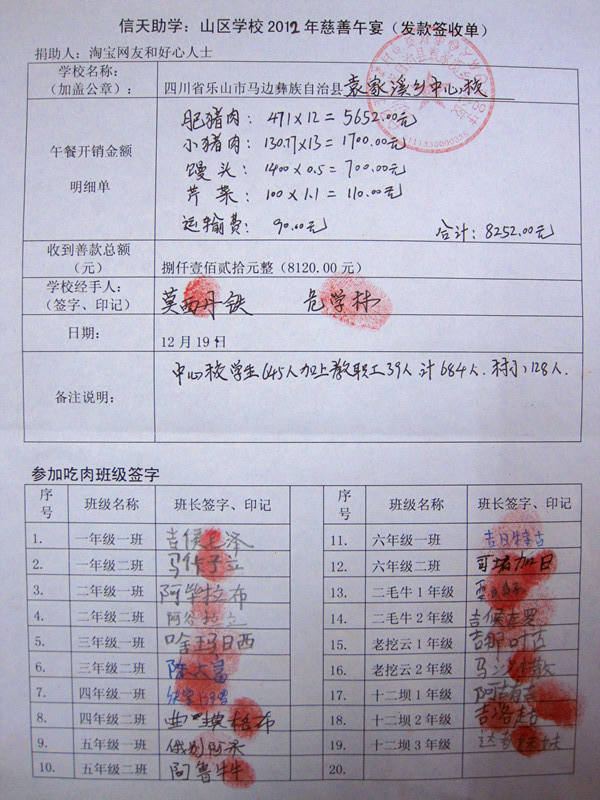 信天助学：山区学校 2012 年慈善午宴（发款签收单）
捐助人：淘宝网友和好心人士
学校名称：
（加盖公章）：
四川省乐山市马边彝族自治县袁家溪乡中心校
午餐开销金额
明细单
肥猪肉： 471×12 = 5652.00元
小猪肉： 130.77×13 = 1700.00元
馒 头： 1400×0.5 = 700.00元
芹 菜： 100×1.1 = 110.00元
运输费： 90.00元 合计：8252.00元
收到善款总额
（元）
捌仟壹佰贰拾元整（8120.00 元）
学校经手人：
（签字、印记）
莫西丹铁 危学林
日期：
12 月 19日
备注说明：
中心校学生645人加上教职工39人 计684人. 村小128人.
参加吃肉班级签字
序号 班级名称 班长签字、印记 序号 班级名称 班长签字、印记
1. 一年级一班 11. 六年级一班
2. 一年级二班 12. 六年级二班
3. 二年级一班 阿牛拉布 13. 二毛牛 1 年级
4. 二年级二班 14. 二毛牛 2 年级
5. 三年级一班 哈玛日西 15. 老挖云 1 年级
6. 三年级二班 16. 老挖云 2 年级
7. 四年级一班 17. 十二坝 1 年级
8. 四年级二班 18. 十二坝 2 年级
9. 五年级一班 19. 十二坝 3 年级
10. 五年级二班 阿鲁牛牛 20.